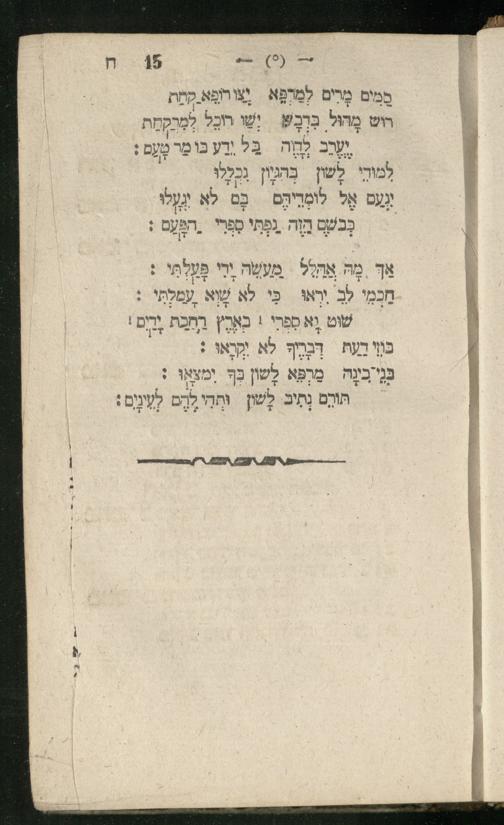 ח 15 — (°) —
סַמִּים מָרִים לְמַרְפֵּא יָצוּ רוֹפֵא קַחַת
רוֹשׁ מָהוּל בִּדְבַשׁ יְשַׁו רוֹכֵל לְמִרְקַחַת
יֶעֱרַב לְחָוֶה בַּל יֵדַע בּוֹ מַר טָעַם :
לִמוּדֵי לָשׁוֹן בְּהִגָּיוֹן נִכְלָלוּ
יִנְעַם אֶל לוֹמְדֵיהֶם בָּם לֹא יִגְעָלוּ
כְּבֹשֶׂם הַזֶּה נָפַתִּי סִפְרִי הַפָּעַם :
אַךְ מָה אֲהַלֵּל מַעֲשֵׂה יָדַי פָּעָלְתִּי :
חַכְמֵי לֵב יִרְאוּ כִּי לֹא שָׁוְא עָמַלְתִּי :
שׁוּט נָא סִפְרִי ! בְּאֶרֶץ רַחֲבַת יָדָיִם !
בּוֹזֵי דַעַת דְּבָרֶיךָ לֹא יִקְרָאוּ :
בְּנֵי־בִינָה מַרְפֵּא לָשׁוֹן בְּךָ יִמְצָאוּ :
תּוֹרֵם נְתִיב לָשׁוֹן וּתְהִי לָהֶם לְעֵינָיִם :